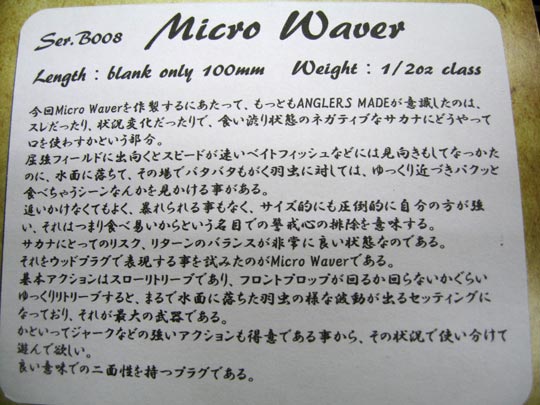 Ser.B008 Micro Waver
Length : blank only 100mm Weight : 1/2oz class
今回Micro Waverを作製するにあたって、もっともANGLERS MADEが意識したのは、
スレだったり、状況変化だったりで、食い渋り状態のネガティブなサカナにどうやって
口を使わすかという部分。
屈強フィールドに出向くとスピードが速いベイトフィッシュなどには見向きもしてなっかた
のに、水面に落ちて、その場でバタバタもがく羽虫に対しては、ゆっくり近づきパクッと
食べちゃうシーンなんかを見かける事がある。
追いかけなくてもよく、暴れられる事もなく、サイズ的にも圧倒的に自分の方が強
い、それはつまり食べ易いからという名目での警戒心の排除を意味する。
サカナにとってのリスク、リターンのバランスが非常に良い状態なのである。
それをウッドプラグで表現する事を試みたのがMicro Waverである。
基本アクションはスローリトリーブであり、フロントプロップが回るか回らないかぐらい
ゆっくりリトリーブすると、まるで水面に落ちた羽虫の様な波動が出るセッティングに
なっており、それが最大の武器である。
かといってジャークなどの強いアクションも得意である事から、その状況で使い分けて
遊んで欲しい。
良い意味での二面性を持つプラグである。